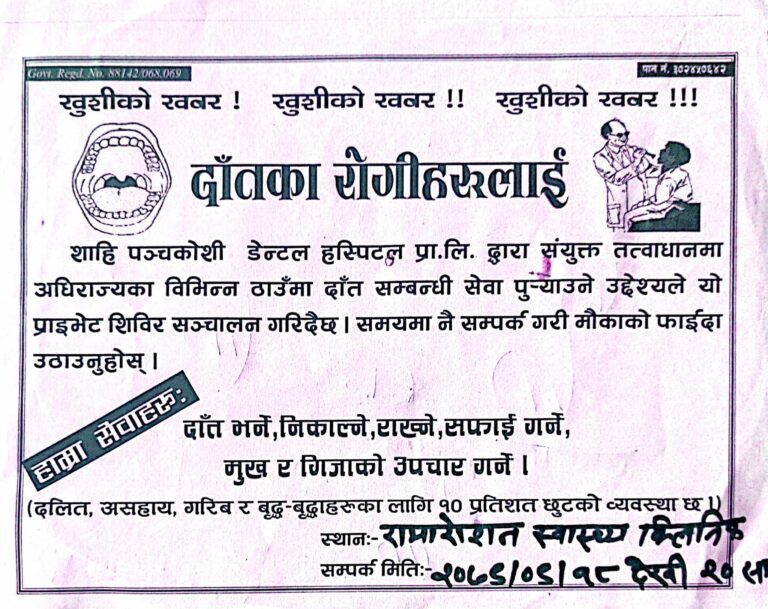 Govt. Regd. No. 88142/068.069
पान नं. ३०२४५०६४२
खुशीको खबर ! खुशीको खबर !! खुशीको खबर !!!
दाँतका रोगीहरुलाई
शाहि पञ्चकोशी डेन्टल हस्पिटल प्रा.लि. द्धारा संयुक्त तत्वाधानमा
अधिराज्यका विभिन्न ठाउँमा दाँत सम्बन्धी सेवा पुऱ्याउने उद्देश्यले यो
प्राइभेट शिविर सञ्चालन गरिदैछ । समयमा नै सम्पर्क गरी मौकाको फाईदा
उठाउनुहोस् ।
हाम्रा सेवाहरु:
दाँत भर्ने,निकाल्ने,राख्ने,सफाई गर्ने,
मुख र गिजाको उपचार गर्ने ।
(दलित, असहाय, गरिब र बृद्ध-बृद्धाहरुका लागि १० प्रतिशत छुटको व्यवस्था छ ।)
स्थान:- स्वास्थ्य क्लिनिक
सम्पर्क मिति:- २०७६/०६/१८ देखी २०